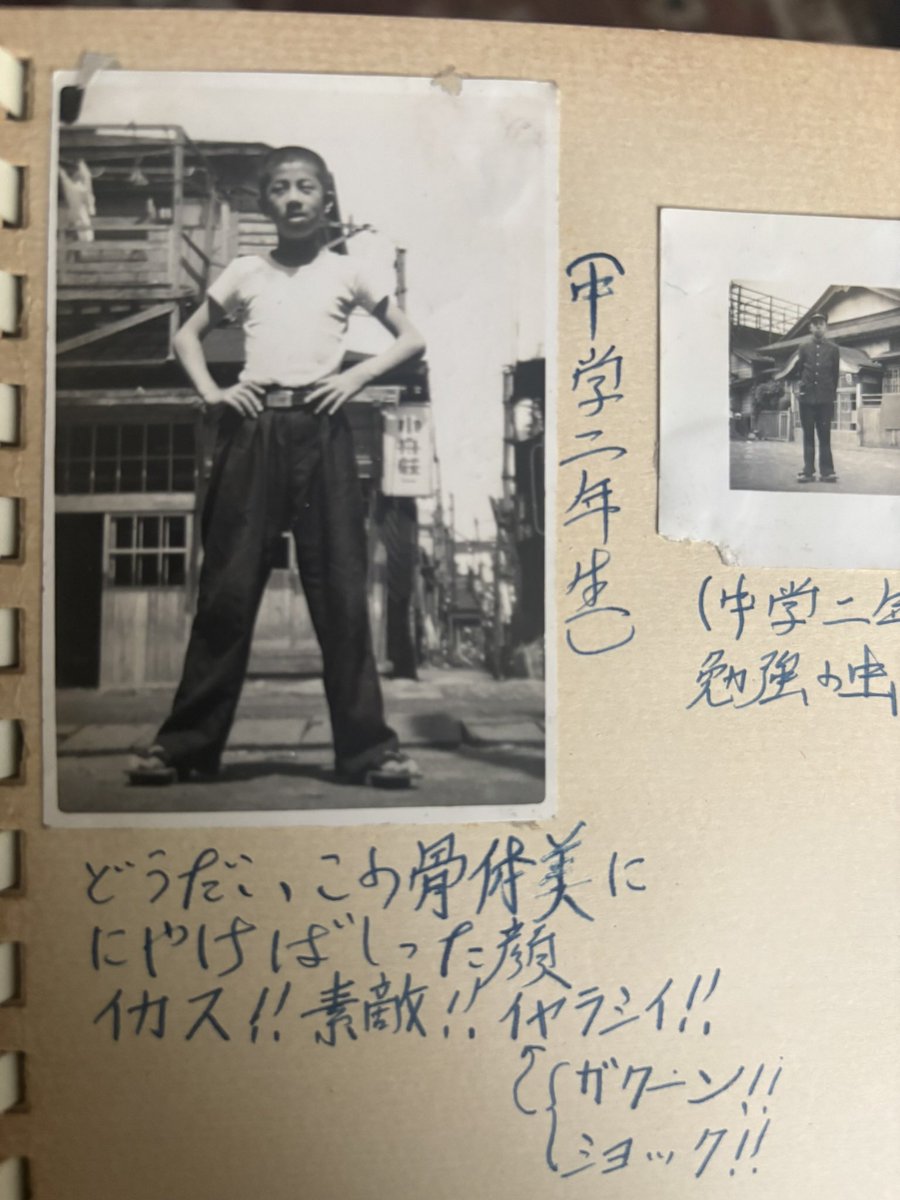 (中学二年生)
小舟荘
(中学二年
勉強の虫
どうだい、この骨体美に
にやけばしった顔
イカス!!素敵!!イヤラシイ!!
ガクーン!!
ショック!!